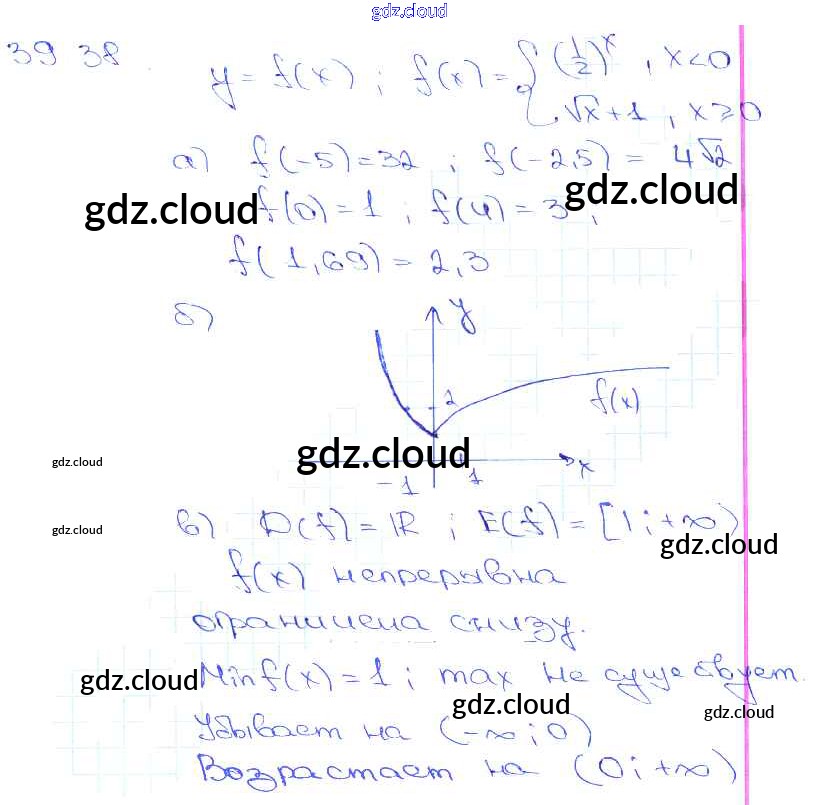 gdz.cloud
39 38. y = f(x) ; f(x) = { (1/2)^x , x < 0
√x + 1 , x ≥ 0
а) f(-5) = 32 ; f(-2,5) = 4√2
gdz.cloud f(0) = 1 ; f(4) = 3 ; gdz.cloud
f(1,69) = 2,3
б) y
2 f(x)
gdz.cloud gdz.cloud x
-1 1
в) D(f) = R ; E(f) = [1 ; +∞)
gdz.cloud gdz.cloud
f(x) непрерывна
ограничена снизу.
gdz.cloud Min f(x) = 1 ; max не существует.
gdz.cloud gdz.cloud
Убывает на (-∞ ; 0)
Возрастает на (0 ; +∞)